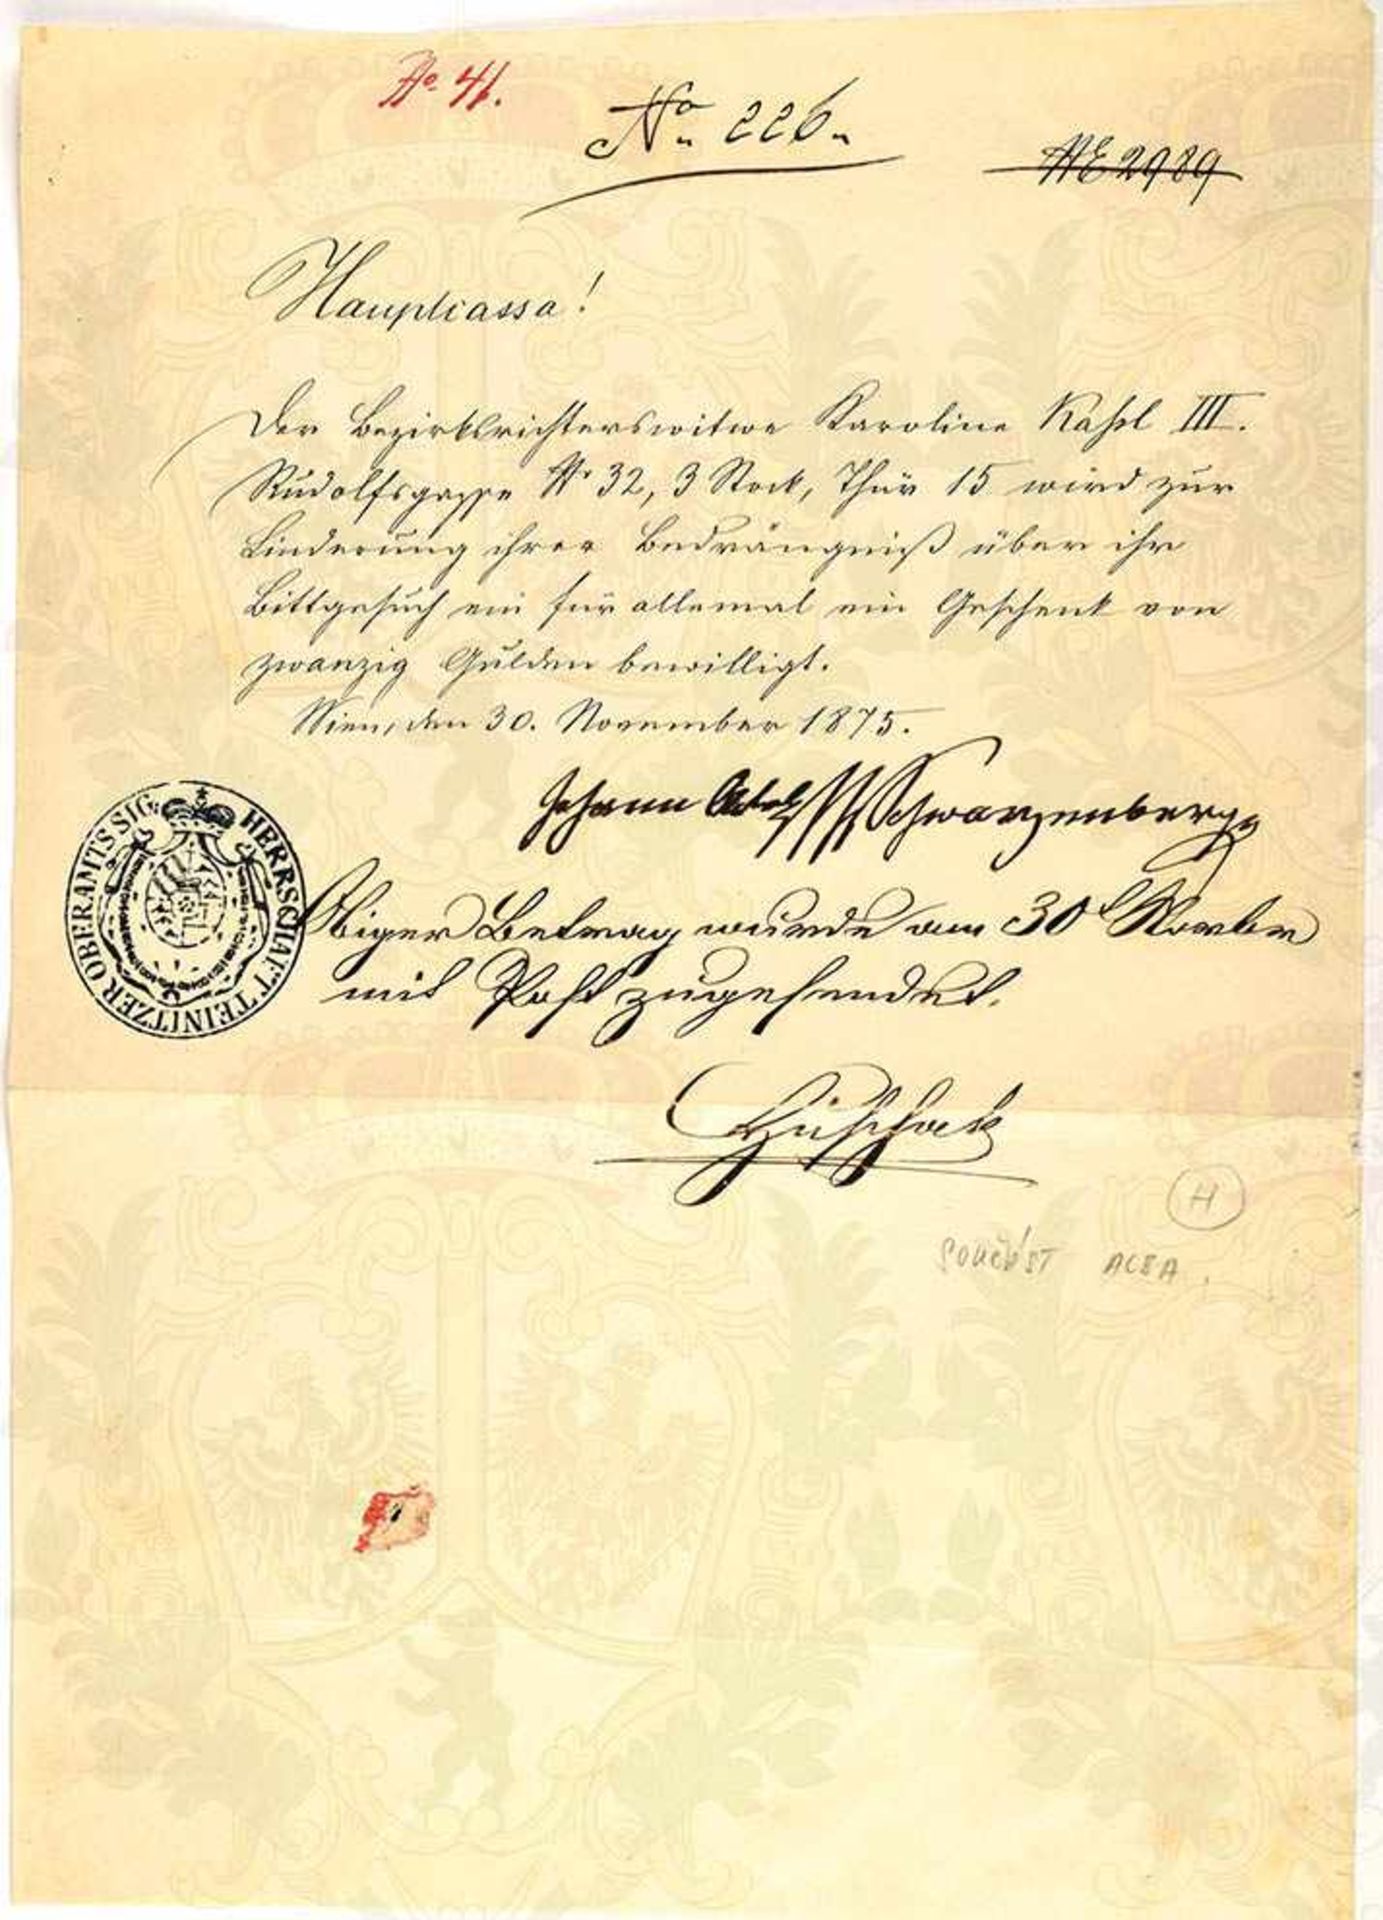 No 41.
No. 226.
NE 2989
Hauptcassa!
Der Bezirksrichterswitwe Karoline Kahsl III.
Rudolfsgasse No 32, 3 Stock, Thür 15 wird zur
Linderung ihrer Bedrängniß über ihr
Bittgesuch ein für allemal ein Geschenk von
zwanzig Gulden bewilligt.
Wien, den 30. November 1875.
Johann Adolf Schwarzenberg
HERRSCHAFT TEINITZER OBERAMTSSIG:
Obiger Betrag wurde am 30t November
mit Post zugesendet.
H
SOUČÁST ACBA.